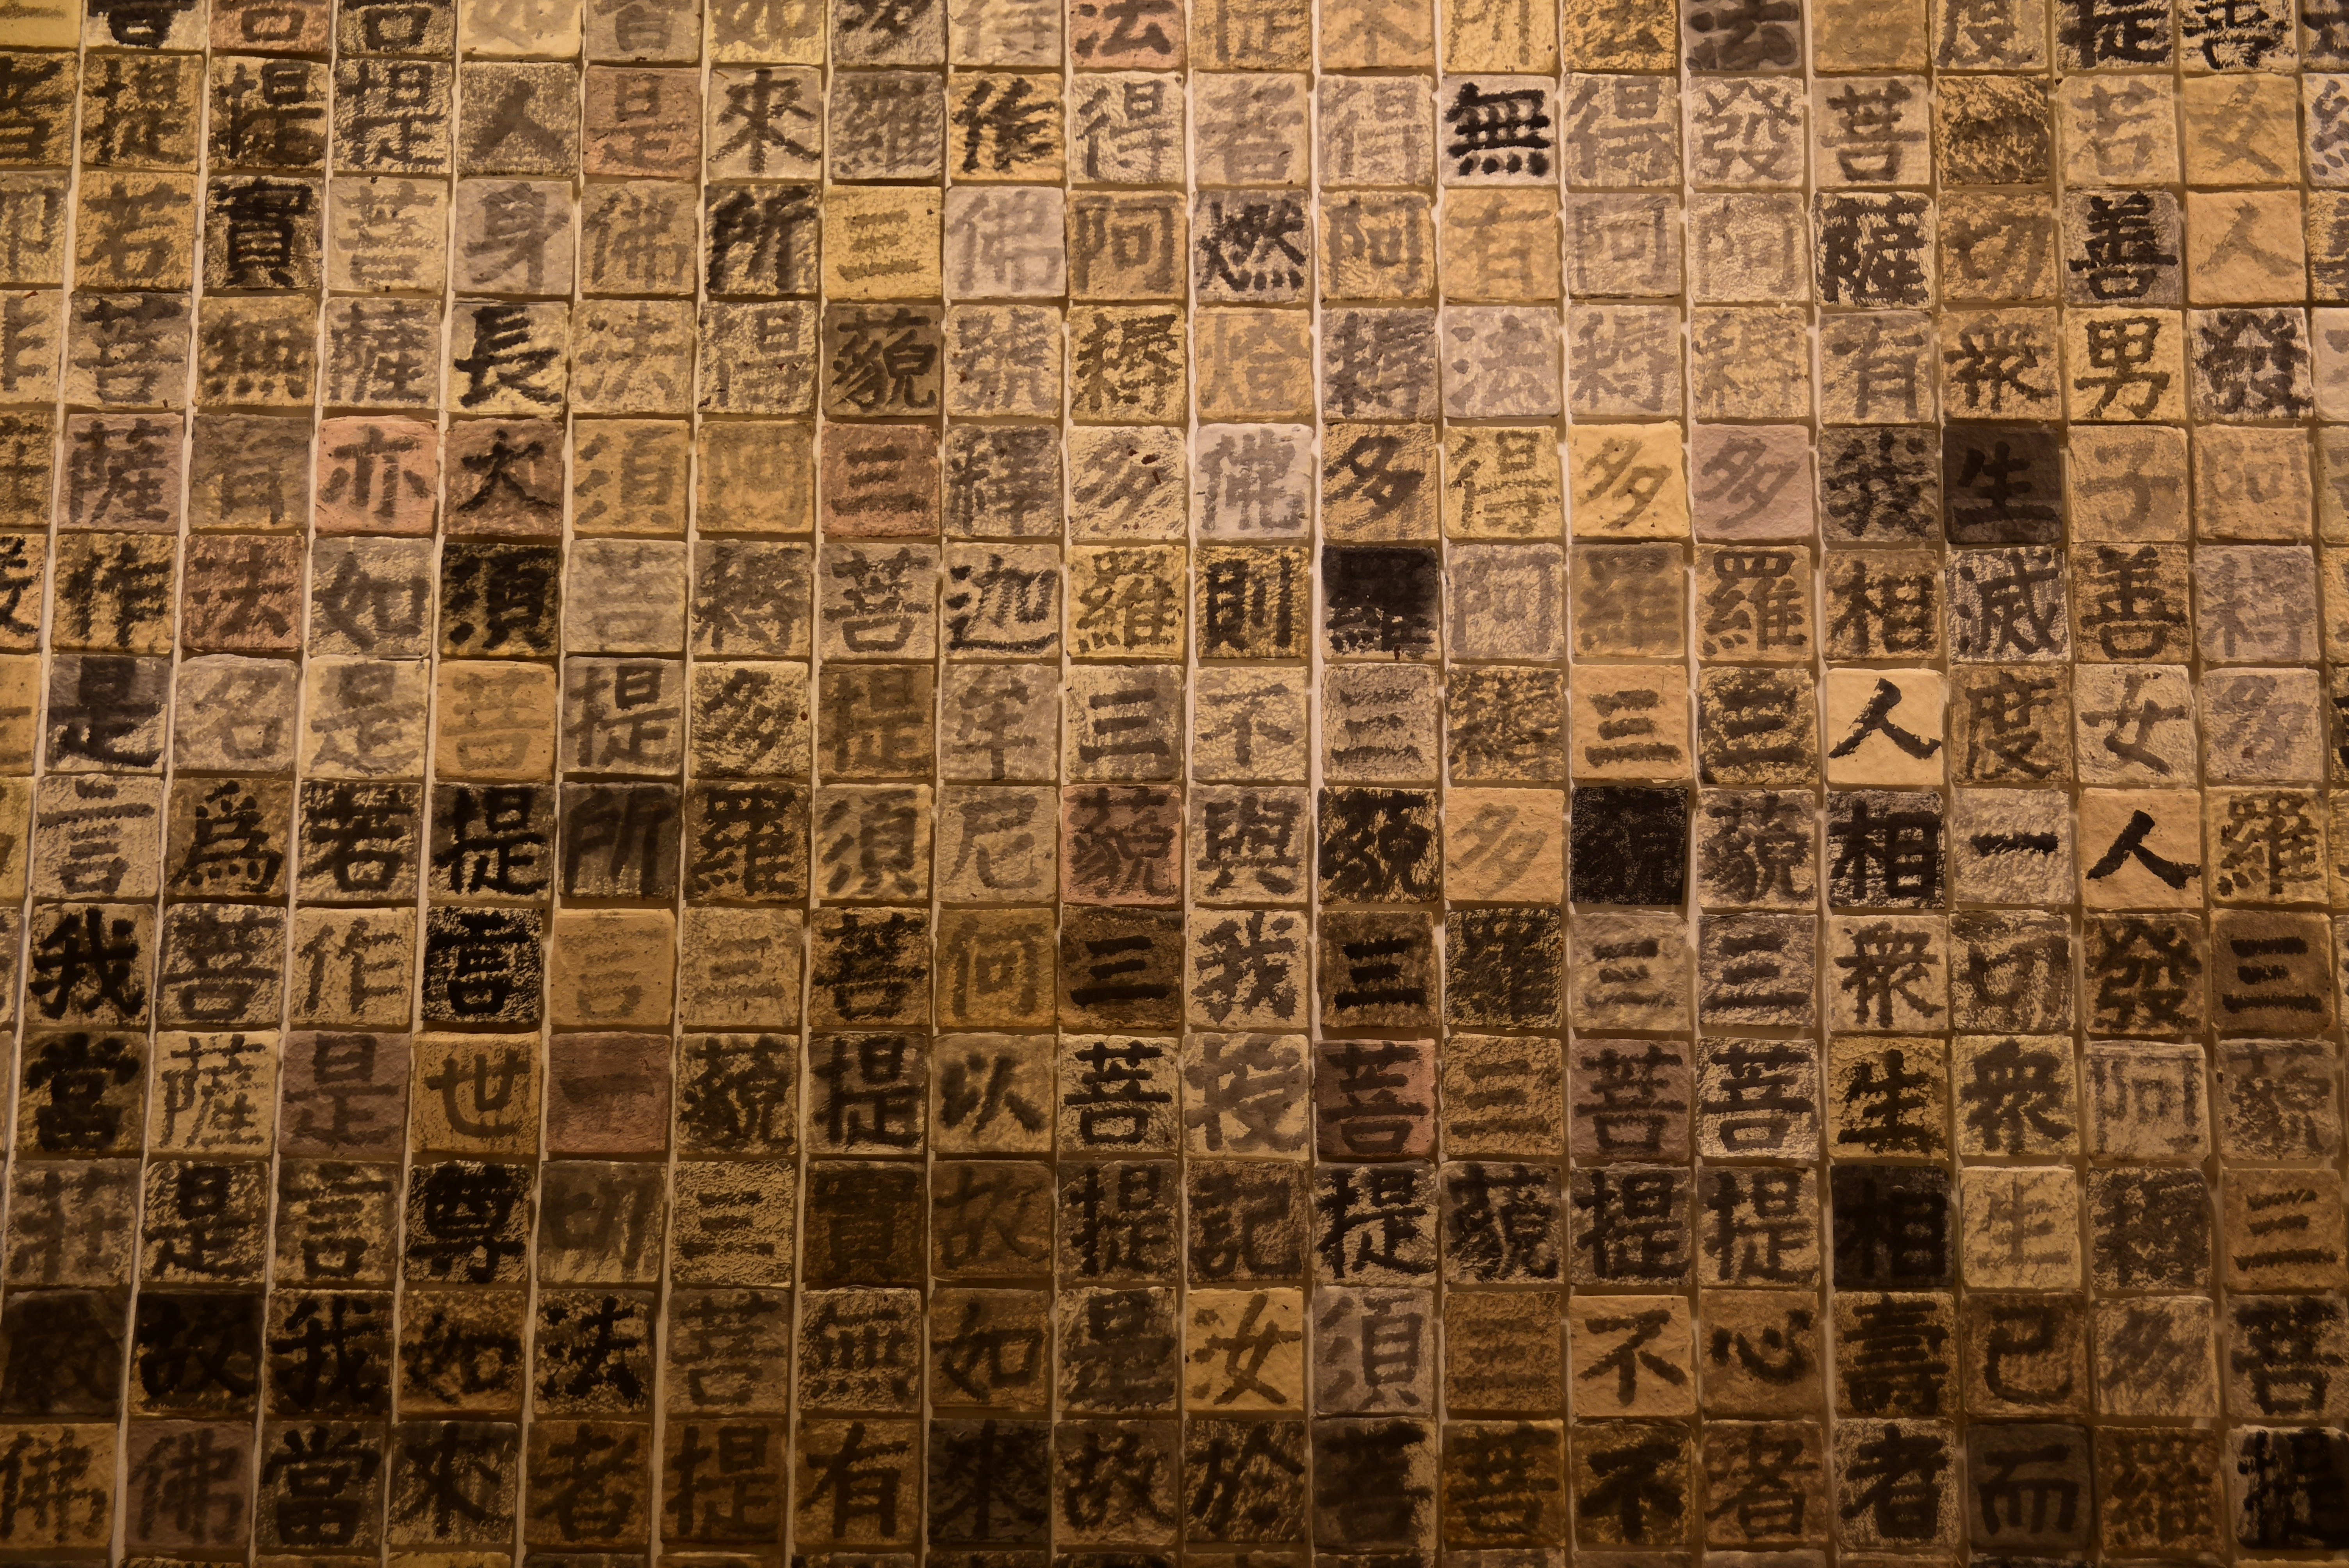 善女人發阿耨多羅三藐三菩提
提若善男子善女人發阿耨多羅
度一切衆生滅度一切衆生已而
菩薩有我相人相衆生相壽者
法發阿耨多羅三藐三菩提心者
法得阿耨多羅三藐三菩提不不
所無有法得阿耨多羅三藐三菩
來得阿耨多羅三藐三菩提須菩
提者燃燈佛則不與我授記汝於
法得阿耨多羅三藐三菩提是故
得作佛號釋迦牟尼何以故如來
多羅三藐三菩提須菩提實無有
如來所得阿耨多羅三藐三菩提
皆是佛法須菩提所言一切法者
如人身長大須菩提言世尊如來
菩提菩薩亦如是若作是言我當
菩提實無有法名爲菩薩是故佛
菩提若菩薩作是言我當莊嚴佛